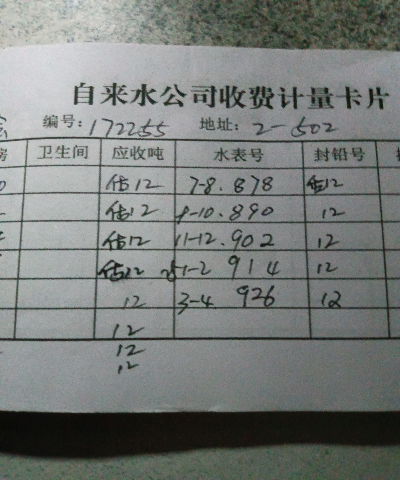 自来水公司收费计量卡片
编号: 172255 地址: 2-502
卫生间 应收吨 水表号 封铅号
估12 7-8. 878 估12
估12 9-10. 890 12
估12 11-12. 902 12
估12 1-2 914 12
12 3-4 926 12
12
12
12